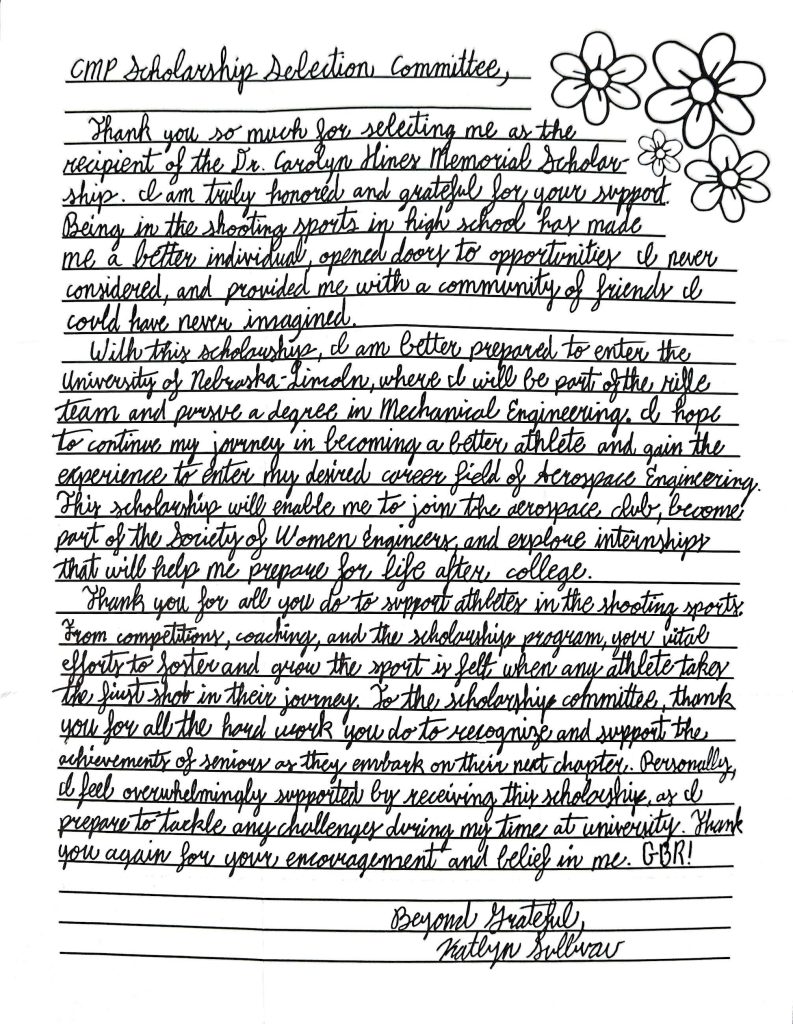 CMP Scholarship Selection Committee,
Thank you so much for selecting me as the
recipient of the Dr. Carolyn Hines Memorial Scholar-
ship. I am truly honored and grateful for your support.
Being in the shooting sports in high school has made
me a better individual, opened doors to opportunities I never
considered, and provided me with a community of friends I
could have never imagined.
With this scholarship, I am better prepared to enter the
University of Nebraska-Lincoln, where I will be part of the rifle
team and pursue a degree in Mechanical Engineering. I hope
to continue my journey in becoming a better athlete and gain the
experience to enter my desired career field of Aerospace Engineering.
This scholarship will enable me to join the aerospace club, become
part of the Society of Women Engineers, and explore internships
that will help me prepare for life after college.
Thank you for all you do to support athletes in the shooting sports.
From competitions, coaching, and the scholarship program, your vital
efforts to foster and grow the sport is felt when any athlete takes
the first shot in their journey. To the scholarship committee, thank
you for all the hard work you do to recognize and support the
achievements of seniors as they embark on their next chapter. Personally,
I feel overwhelmingly supported by receiving this scholarship, as I
prepare to tackle any challenges during my time at university. Thank
you again for your encouragement and belief in me. GBR!
Beyond Grateful,
Katlyn Sullivan